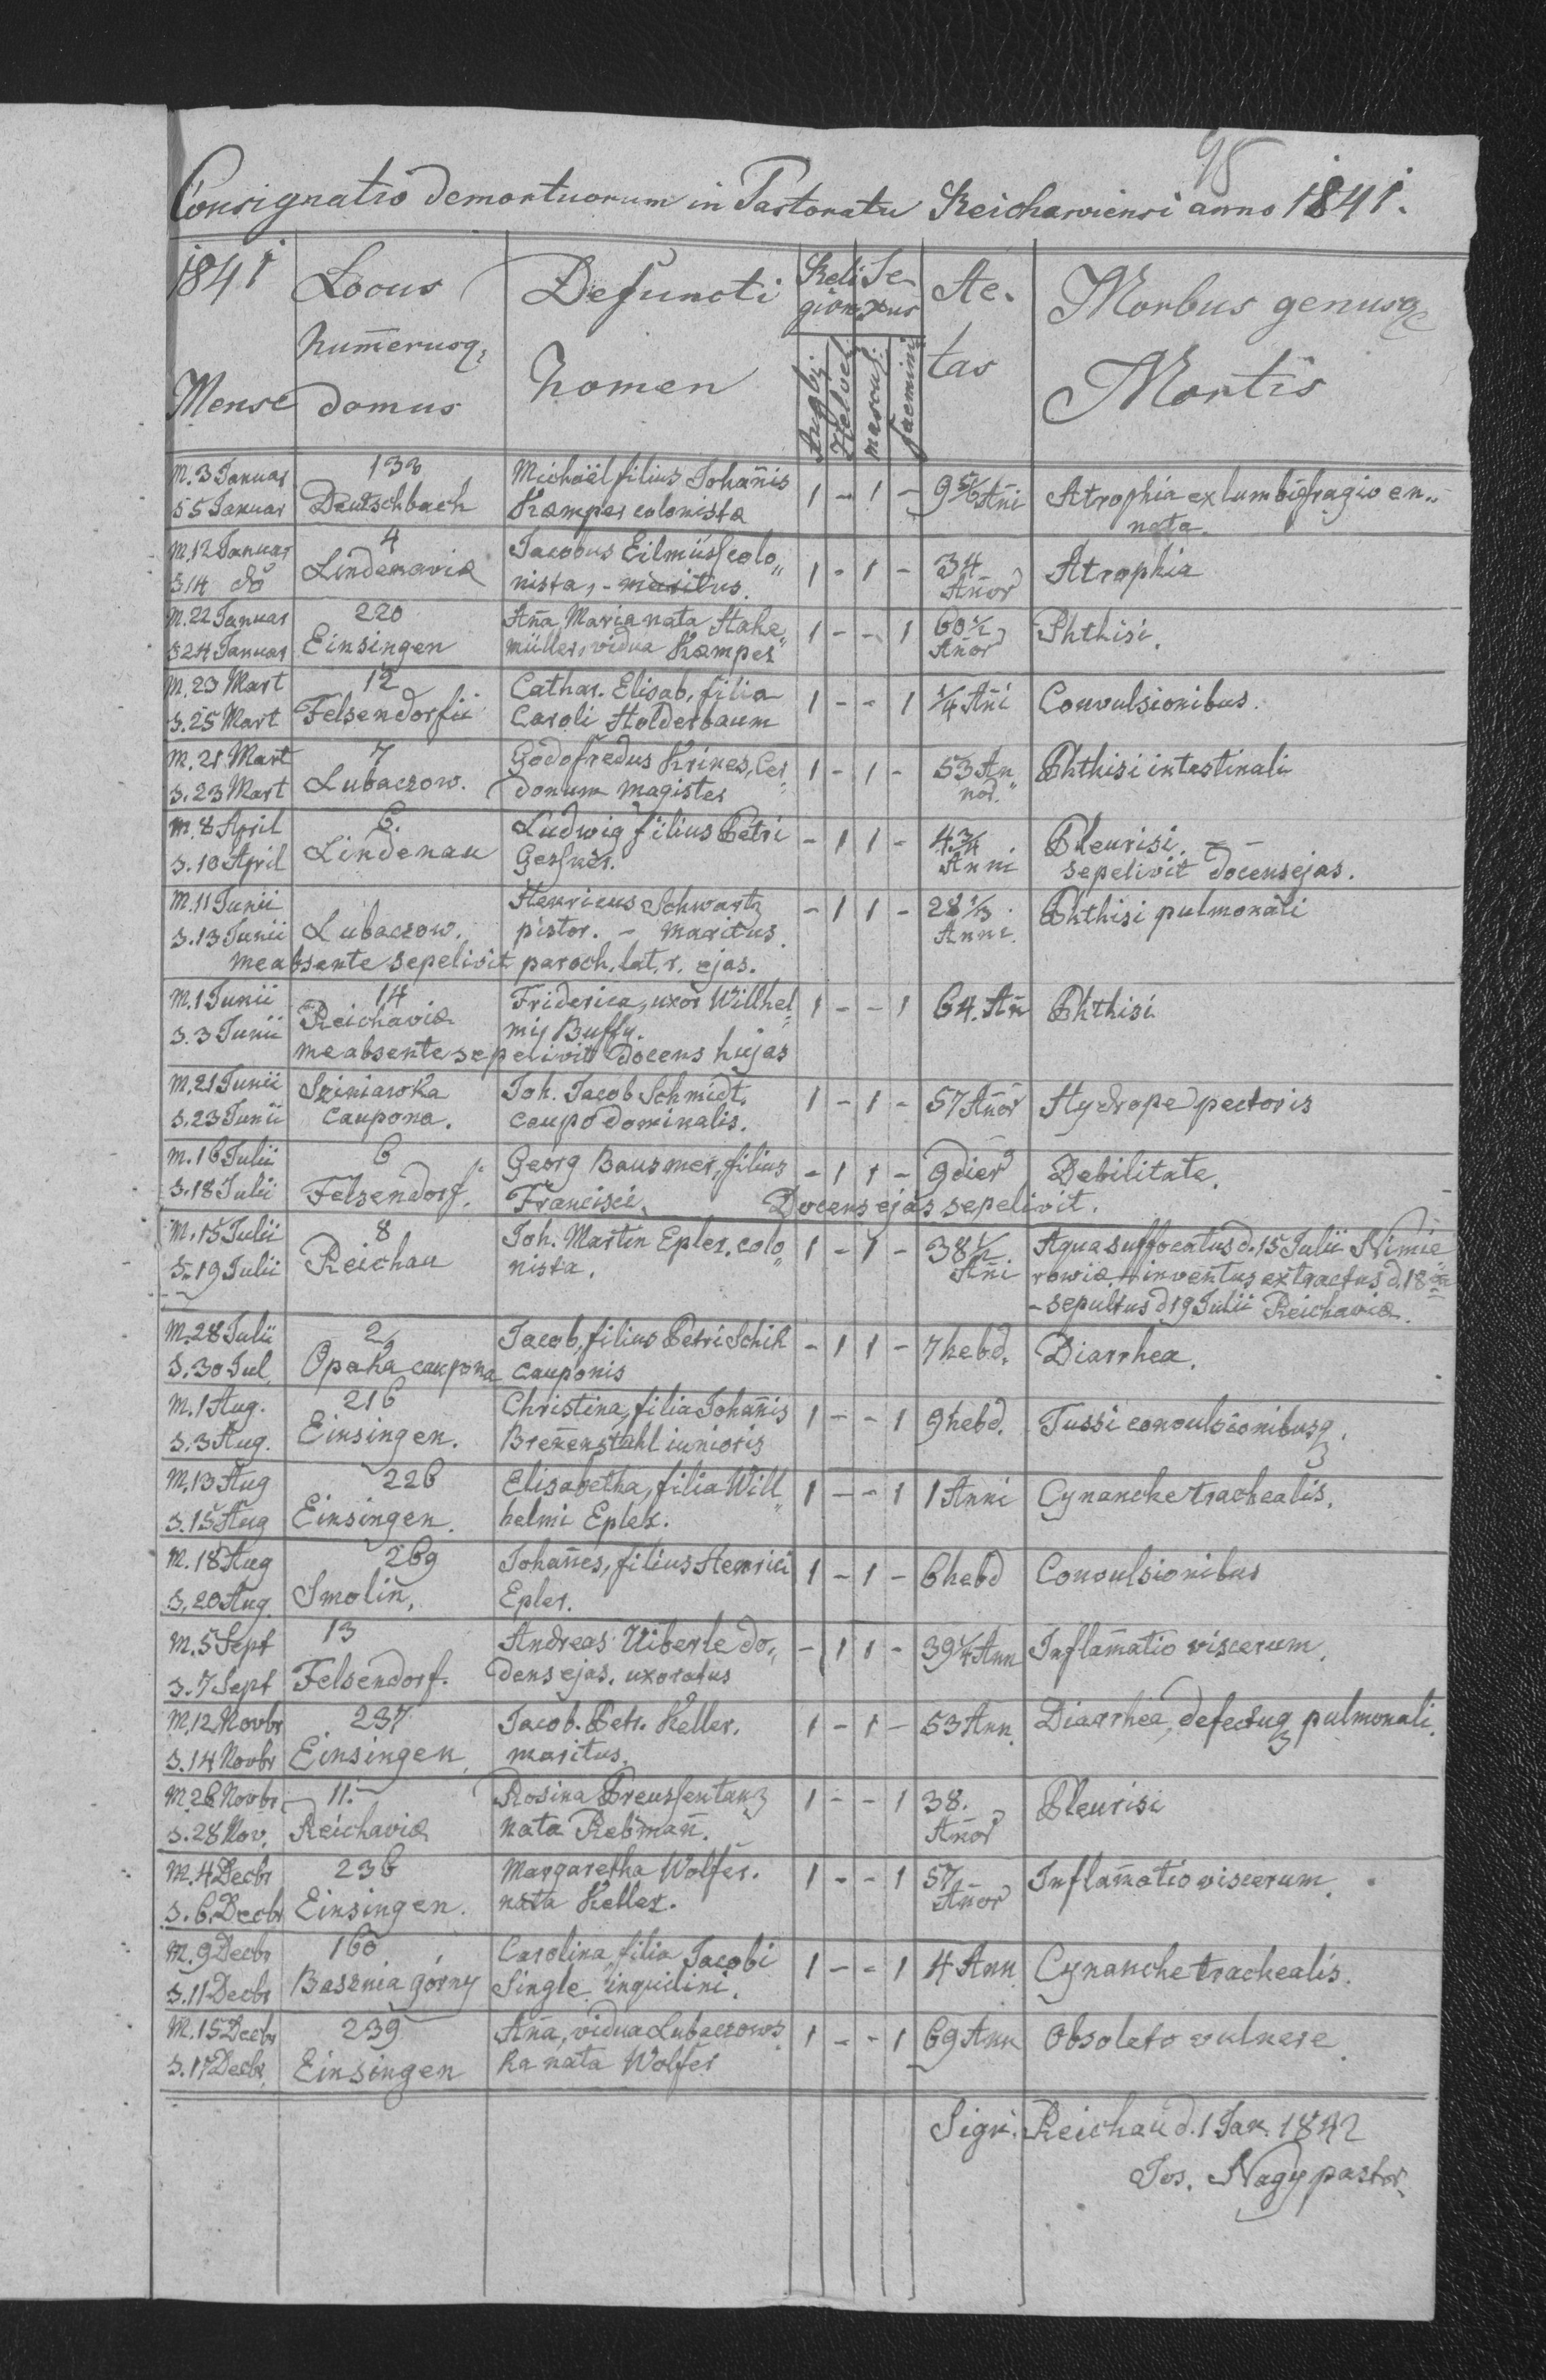 98
Consignatio demortuorum in Pastoratu Reichaviensi anno 1841.
1841 Mense
Locus num̄erusq, domus
Defuncti nomen
Religion
Sexus
Augb.
Helvet
mascul.
faemini
Aetas
Morbus genusq Mortis
M. 3 Januar 133 Michaël filius Johan̄is
S 5 Januar Deutschbach Kæmper colonistæ 1 - 1 - 9 5/6 An̄i Atrophia ex lumbifragio en„
nata.
M. 12 Januar 4 Jacobus Eilmüss colo„ 34
S. 14 do Lindenaviæ nista, - maritus. 1 - 1 - An̄or Atrophia
M. 22 Januar 220 An̄a Maria nata Stahe„ 60 1/2
S 24 Januar Einsingen müller, vidua Kæmper 1 - - 1 An̄or Phthisi.
M. 23 Mart 12 Cathar. Elisab. filia
S. 25 Mart Felsendorfii Caroli Holderbaum 1 - - 1 1/4 An̄i Convulsionibus.
M. 21 Mart 7 Godofredus Krines, Cer„ 53 An„
S. 23 Mart Lubaczow. donum magister 1 - 1 - nor. Phthisi intestinali
M. 8 April 6. Ludwig filius Petri 4 3/4 Pleurisi. -
S. 10 April Lindenau Gesner. - 1 1 - Anni sepelivit docens ejas.
M. 11 Junii Henricus Schwartz 28 1/3
S. 13 Junii Lubaczow. pistor. - maritus. - 1 1 - Anni. Phthisi pulmonali
me absente sepelivit paroch. lat. r. ejas.
M. 1 Junii 14 Friderica, uxor Willhel„
S. 3 Junii Reichaviæ mi Buffy. 1 - - 1 64. An̄ Phthisi
me absente sepelivit docens hujas
M. 21 Junii Siniawka Joh. Jacob Schmidt,
S. 23 Junii caupona. caupo dominalis. 1 - 1 - 57 An̄or Hydrope pectoris
M. 16 Julii 6 Georg Bausmer, filius
S. 18 Julii Felsendorf. Francisci. - 1 1 - 9 dier Debilitate.
Docens ejas sepelivit.
M. 15 Julii 8 Joh. Martin Epler, colo„ 38 1/2 Aqua suffocatus d. 15 Julii Nimie„
S. 19 Julii Reichau nista. 1 - 1 - An̄i rowiæ inventus extractus d. 18
- sepultus d 19 Julii Reichaviæ.
M. 28 Julii 2 Jacob, filius Petri Schik
S. 30 Jul. Opaka caupona cauponis - 1 1 - 7 hebd. Diarrhea.
M. 1 Aug. 216 Christina, filia Johan̄is
S. 3 Aug. Einsingen. Bren̄enstahl iunioris 1 - - 1 9 hebd. Tussi convulsionibusq.
M. 13 Aug 226 Elisabetha, filia Will„
S. 15 Aug Einsingen. helmi Epler. 1 - - 1 1 Anni Cynanche trachealis.
M. 18 Aug 269 Johan̄es, filius Henrici
S. 20 Aug. Smolin, Epler. 1 - 1 - 6 hebd Convulsionibus
M. 5 Sept 13 Andreas Uiberle do„
S. 7 Sept Felsendorf. dens ejas, uxoratus - 1 1 - 39 1/4 Ann Inflam̄atio viscerum.
M. 12 Novbr 237 Jacob. Petr. Keller,
S. 14 Novbr Einsingen. maritus. 1 - 1 - 53 Ann. Diarrhea, defectuq pulmonali.
M. 26 Novbr 11. Rosina Preussentanz 38.
S. 28 Nov. Reichaviæ nata Rebman̄. 1 - - 1 An̄or Pleurisi
M. 4 Decbr 236 Margaretha Wolfer. 57
S. 6. Decbr Einsingen. nata Keller. 1 - - 1 An̄or Inflam̄atio viscerum.
M. 9 Decbr 160 Carolina filia Jacobi
S. 11 Decbr Basznia górny Single inquilini. 1 - - 1 4 Ann Cynanche trachealis.
M. 15 Decbr 239 An̄a, vidua Lubaczows
S. 17 Decbr. Einsingen ka nata Wolfer 1 - - 1 69 Ann Obsoleto vulnere.
Sign. Reichau d. 1 Jan. 1842
Jos. Nagy pastor